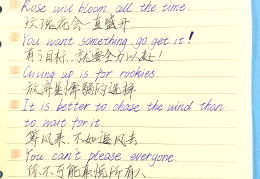 Rose will bloom all the time.
玫瑰花会一直盛开
You want something, go get it!
有了目标，就要全力以赴！
Giving up is for rookies.
放弃是懦弱的选择
It is better to chase the wind than
to wait for it.
等风来，不如追风去
You can't please everyone.
你不可能取悦所有人